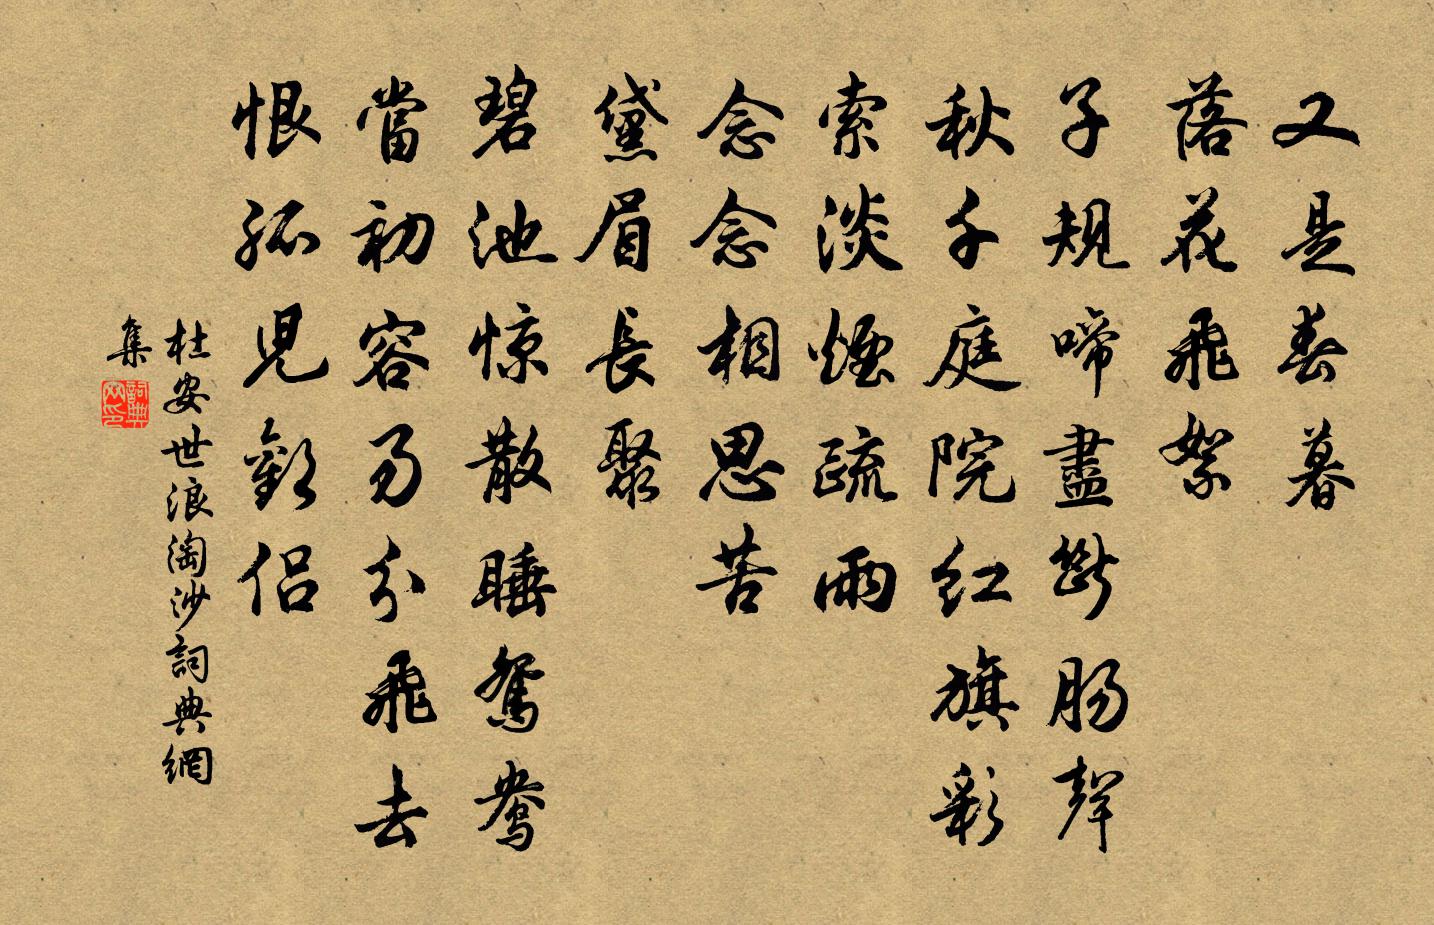 又是春暮
落花飛絮
子規啼盡斷腸聲
秋千庭院紅旗彩
索淡煙疏雨
念念相思苦
黛眉長聚
碧池惊散睡鴛鴦
當初容易分飛去
恨孤兒歡侶
杜安世浪淘沙詞典網
集
詞典網印